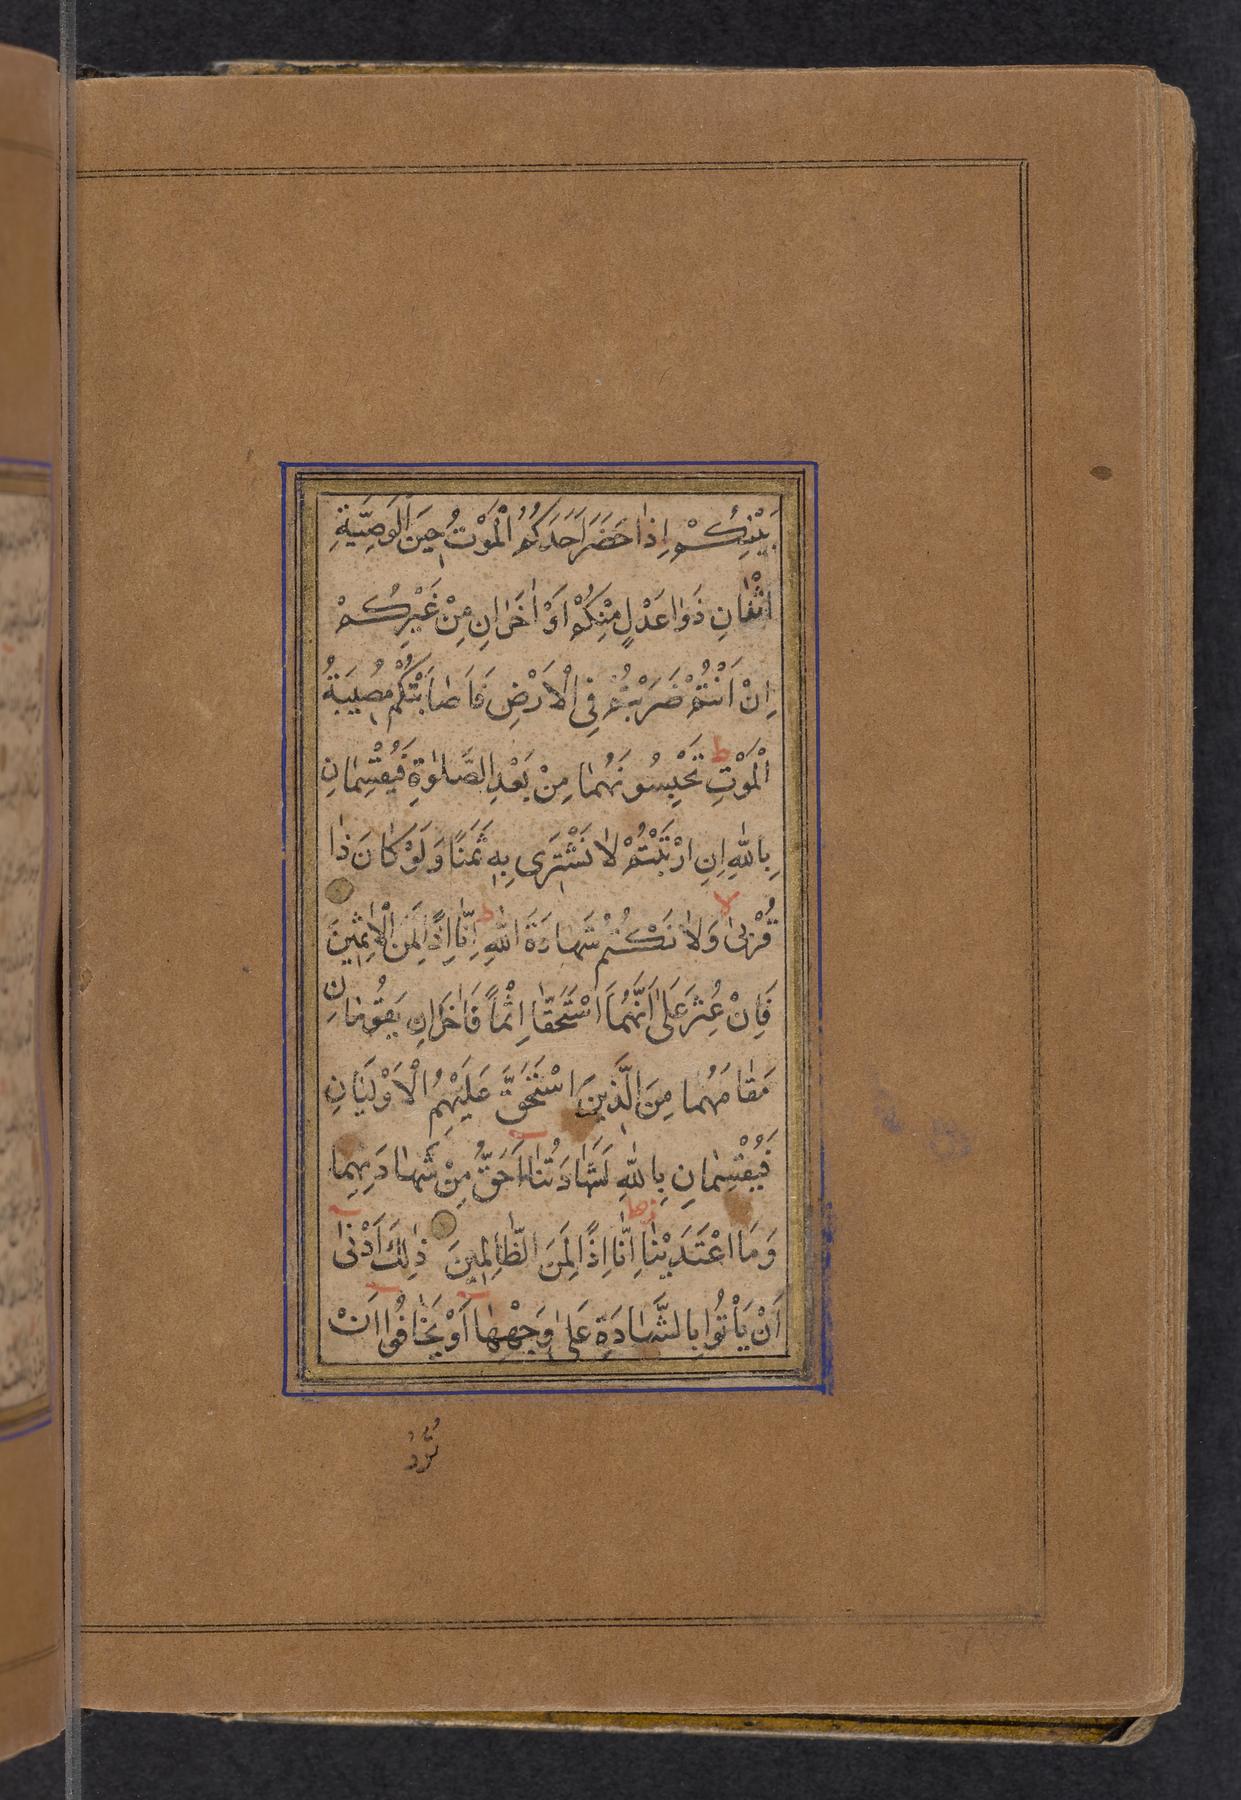 بَيْنِكُمْ اِذٰا حَضَرَ اَحَدَكُمُ الْمَوْتُ حِينَ الْوَصِيَّةِ
اثْنٰانِ ذَوٰا عَدْلٍ مِنْكُمْ اَوْ اٰخَرٰانِ مِنْ غَيْرِكُمْ
اِنْ اَنْتُمْ ضَرَبْتُمْ فِى الْاَرْضِ فَاَصٰابَتْكُمْ مُصِيبَةُ
الْمَوْتِ ط تَحْبِسُونَهُمٰا مِنْ بَعْدِ الصَّلٰوةِ فَيُقْسِمٰانِ
بِاللّٰهِ اِنِ ارْتَبْتُمْ لٰا نَشْتَرِى بِهِ ثَمَنًا وَلَوْ كٰانَ ذٰا
قُرْبىٰ لا وَلٰا نَكْتُمُ شَهٰادَةَ اللّٰهِ اِنّٰا اِذًا لَمِنَ الْاٰثِمِينَ
فَاِنْ عُثِرَ عَلىٰ اَنَّهُمَا اسْتَحَقّٰا اِثْمًا فَاٰخَرٰانِ يَقُومٰانِ
مَقٰامَهُمٰا مِنَ الَّذِينَ اسْتَحَقَّ عَلَيْهِمُ الْاَوْلَيٰانِ
فَيُقْسِمٰانِ بِاللّٰهِ لَشَهٰادَتُنٰا اَحَقُّ مِنْ شَهٰادَتِهِمٰا
وَمَا اعْتَدَيْنٰا اِنّٰا اِذًا لَمِنَ الظّٰالِمِينَ ذٰلِكَ اَدْنىٰ
اَنْ يَأْتُوا بِالشَّهٰادَةِ عَلىٰ وَجْهِهٰا اَوْ يَخٰافُوا اَنْ
تُرَدَّ